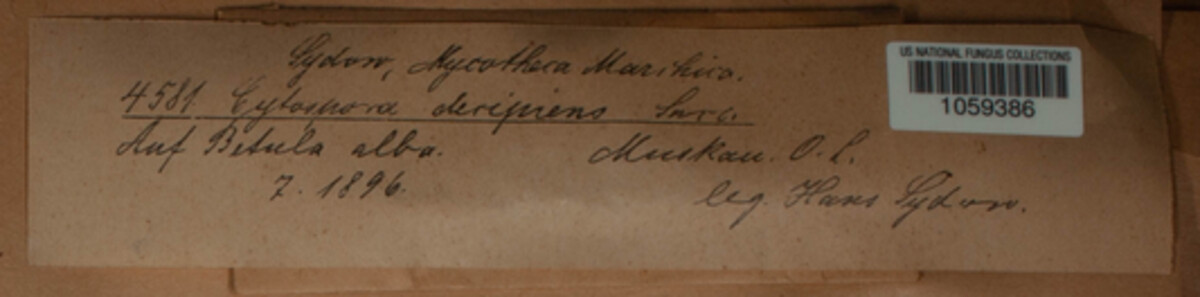 Sydow, Mycotheca Marchica.
4581. Cytospora decipiens Sacc.
Auf Betula alba.
Muskau. O.L.
7. 1896.
leg. Hans Sydow.
US NATIONAL FUNGUS COLLECTIONS
1059386